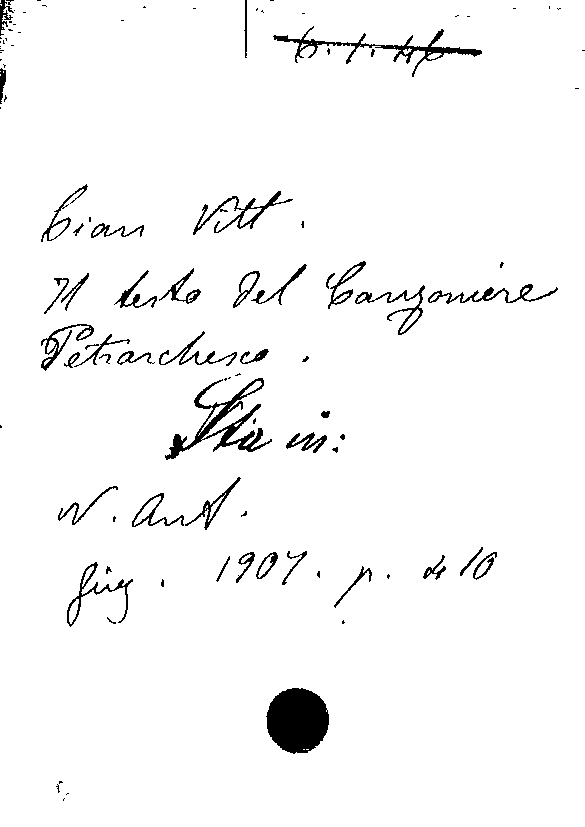 6.1.46
Cian Vitt.
Il testo del Canzoniere
Petrarchesco.
Sta in:
N. Ant.
giug. 1907. p. 410